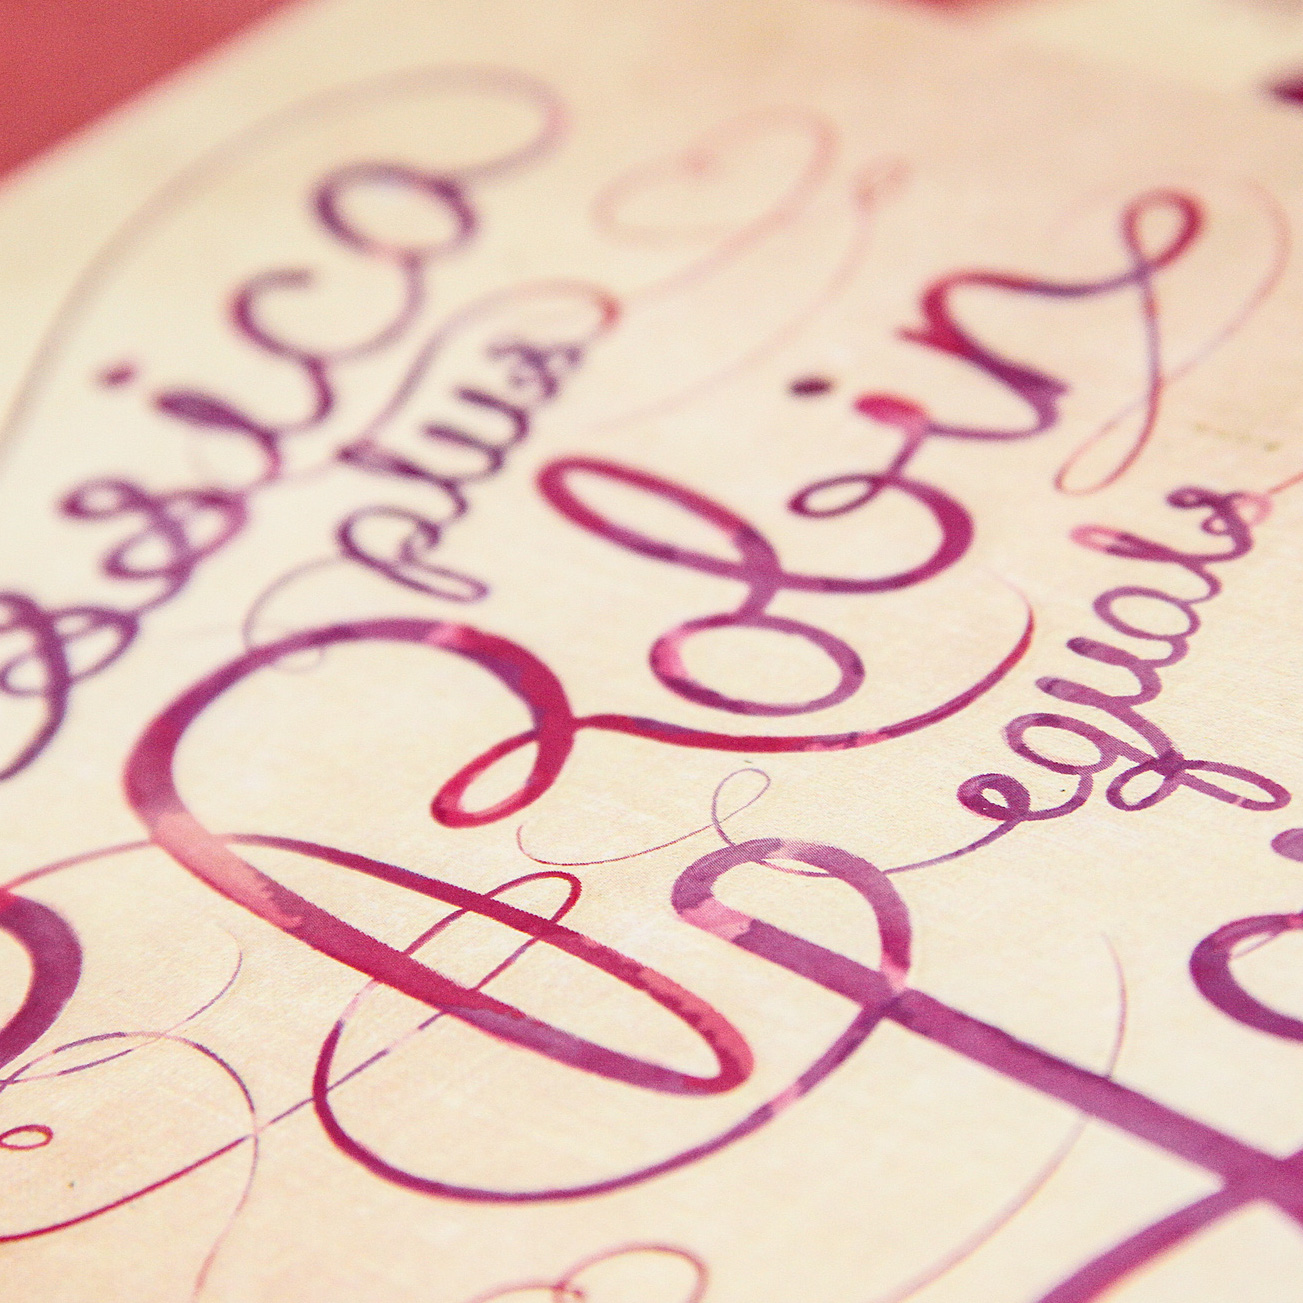 ssica
plus
Robin
equals